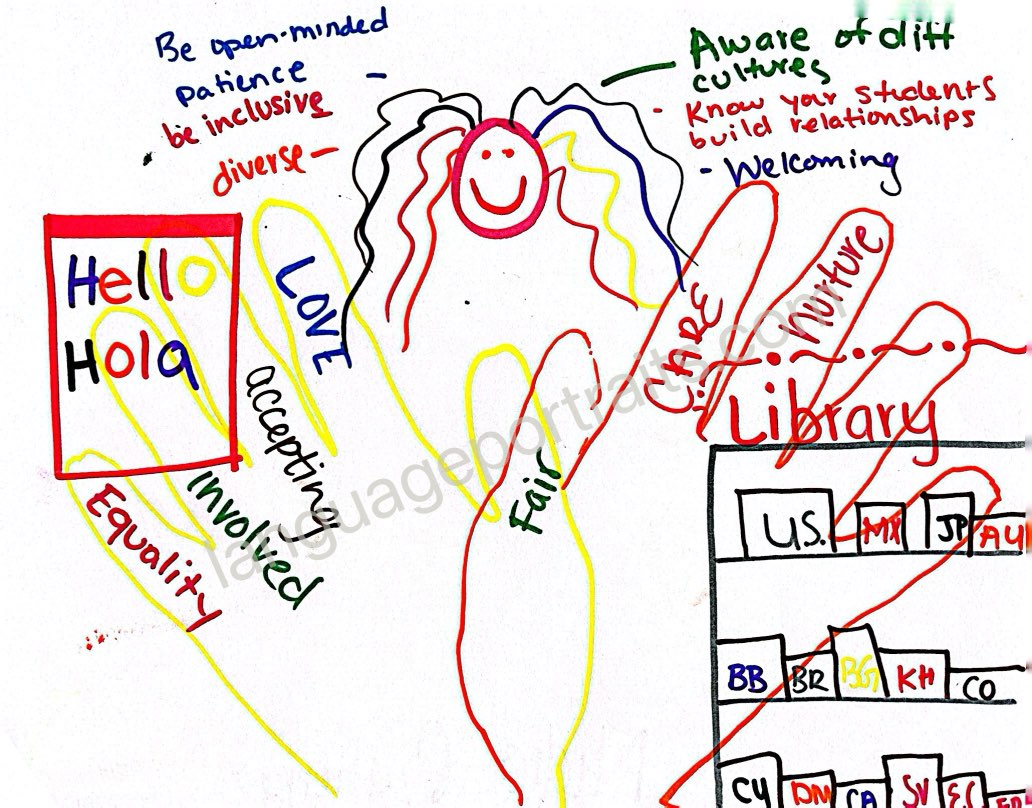 Be open-minded
patience -
be inclusive
diverse -
- Aware of diff
cultures
- Know your students
build relationships
- Welcoming
Hello
Hola
LOVE
accepting
Involved
Equality
Fair
CARE
Nurture
Library
U.S. MX JP AU
BB BR BG KH CO
CY DM CA SV EC
languageportraits.com